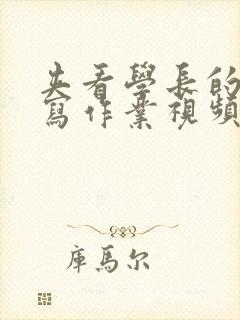 去看學長的
寫作業視頻
庫馬尔